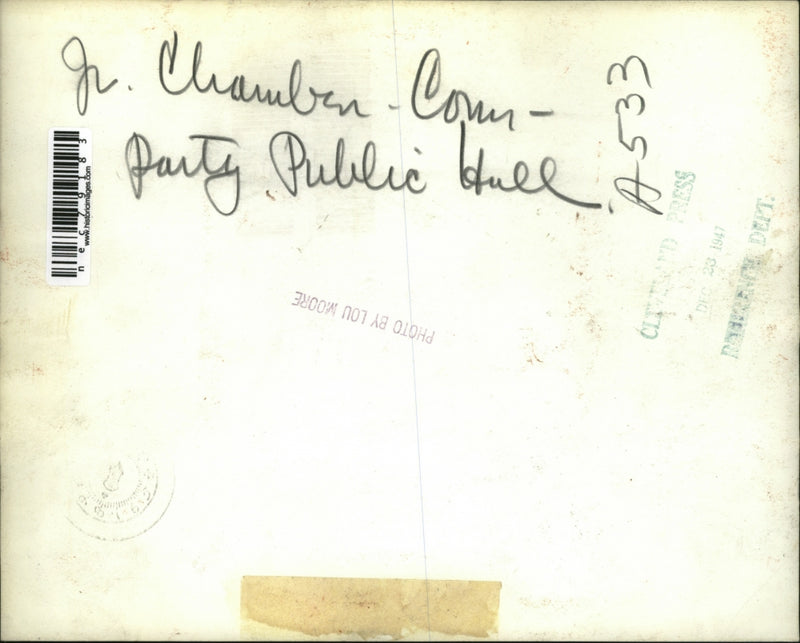 Jr. Chamber - Com -
Party Public Hall.
A-533
nec79183
www.historicimages.com
PHOTO BY LOU MOORE
CLEVELAND PRESS
DEC 23 1947
REFERENCE DEPT.